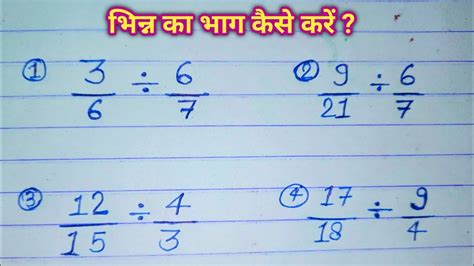 भिन्न का भाग कैसे करें ?
① 3/6 ÷ 6/7
② 9/21 ÷ 6/7
③ 12/15 ÷ 4/3
④ 17/18 ÷ 9/4